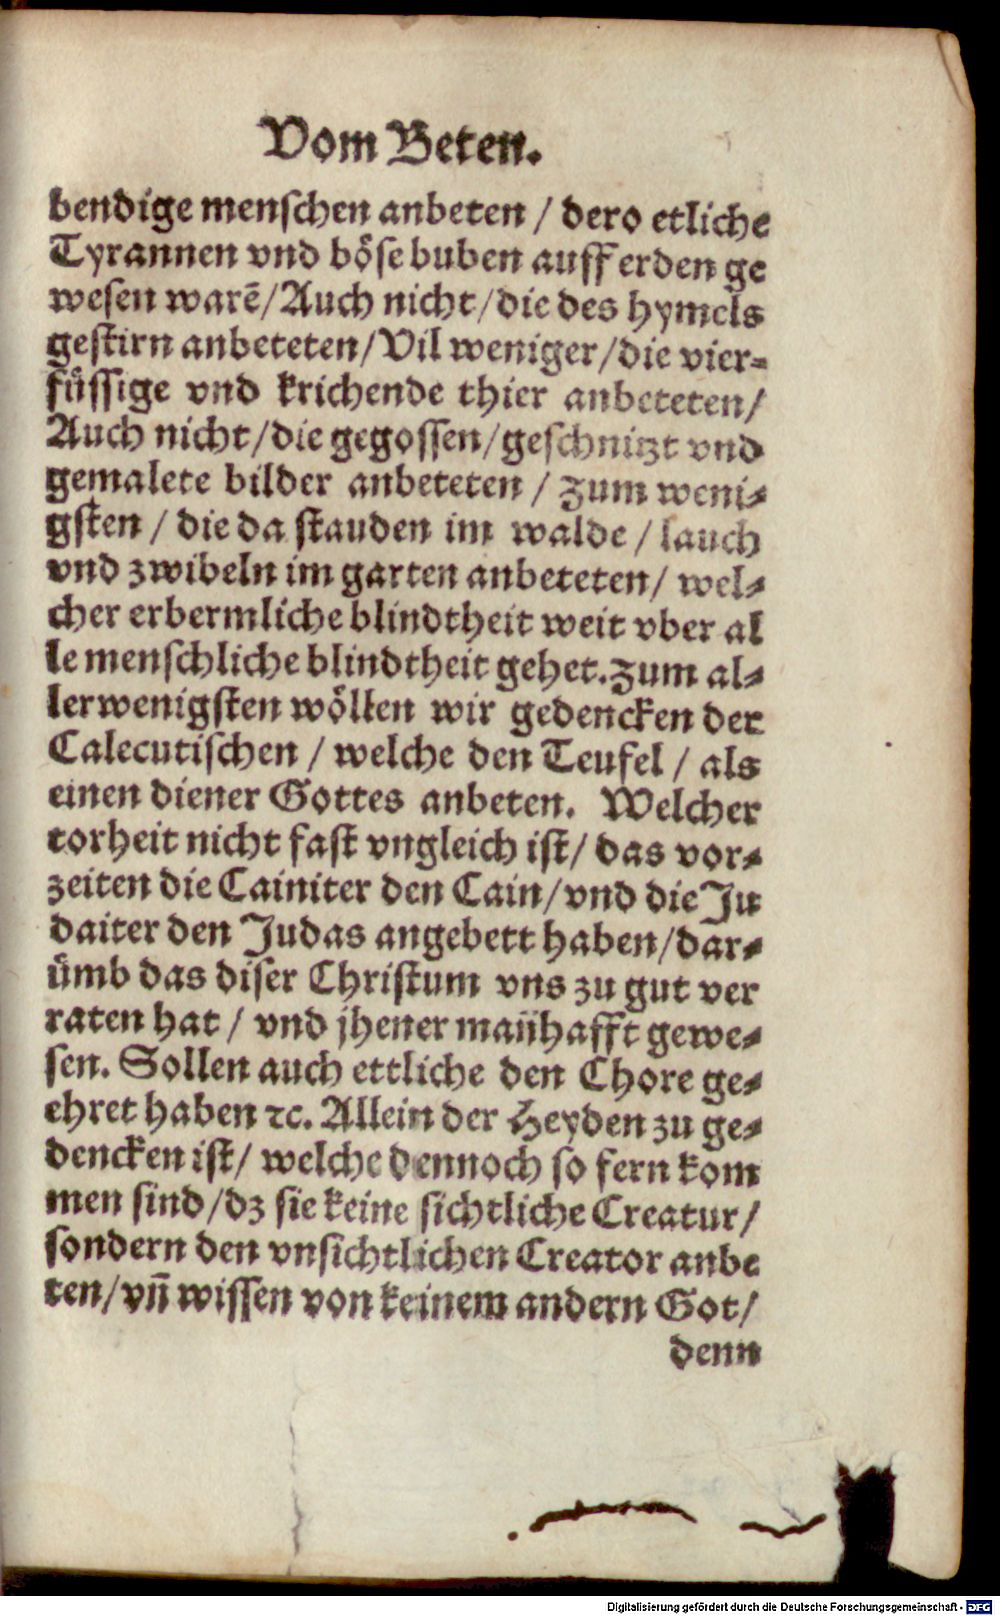 Vom Beten.
bendige menschen anbeten / dero etliche
Tyrannen vnd böse buben auff erden ge
wesen warē/Auch nicht/die des hymels
gestirn anbeteten/Vil weniger/die vier-
füssige vnd krichende thier anbeteten/
Auch nicht/die gegossen/geschnitzt vnd
gemalete bilder anbeteten / zum weni-
gsten / die da stauden im walde / lauch
vnd zwibeln im garten anbeteten/ wel-
cher erbermliche blindtheit weit vber al
le menschliche blindtheit gehet.zum al-
lerwenigsten wöllen wir gedencken der
Calecutischen / welche den Teufel / als
einen diener Gottes anbeten. Welcher
torheit nicht fast vngleich ist/ das vor-
zeiten die Cainiter den Cain/vnd die Ju
daiter den Judas angebett haben/dar-
ümb das diser Christum vns zu gut ver
raten hat / vnd jhener mañhafft gewe-
sen. Sollen auch ettliche den Chore ge-
ehret haben ꝛc. Allein der Heyden zu ge-
dencken ist/ welche dennoch so fern kom
men sind/dz sie keine sichtliche Creatur/
sondern den vnsichtlichen Creator anbe
ten/vñ wissen von keinem andern Got/
denn
Digitalisierung gefördert durch die Deutsche Forschungsgemeinschaft - DFG